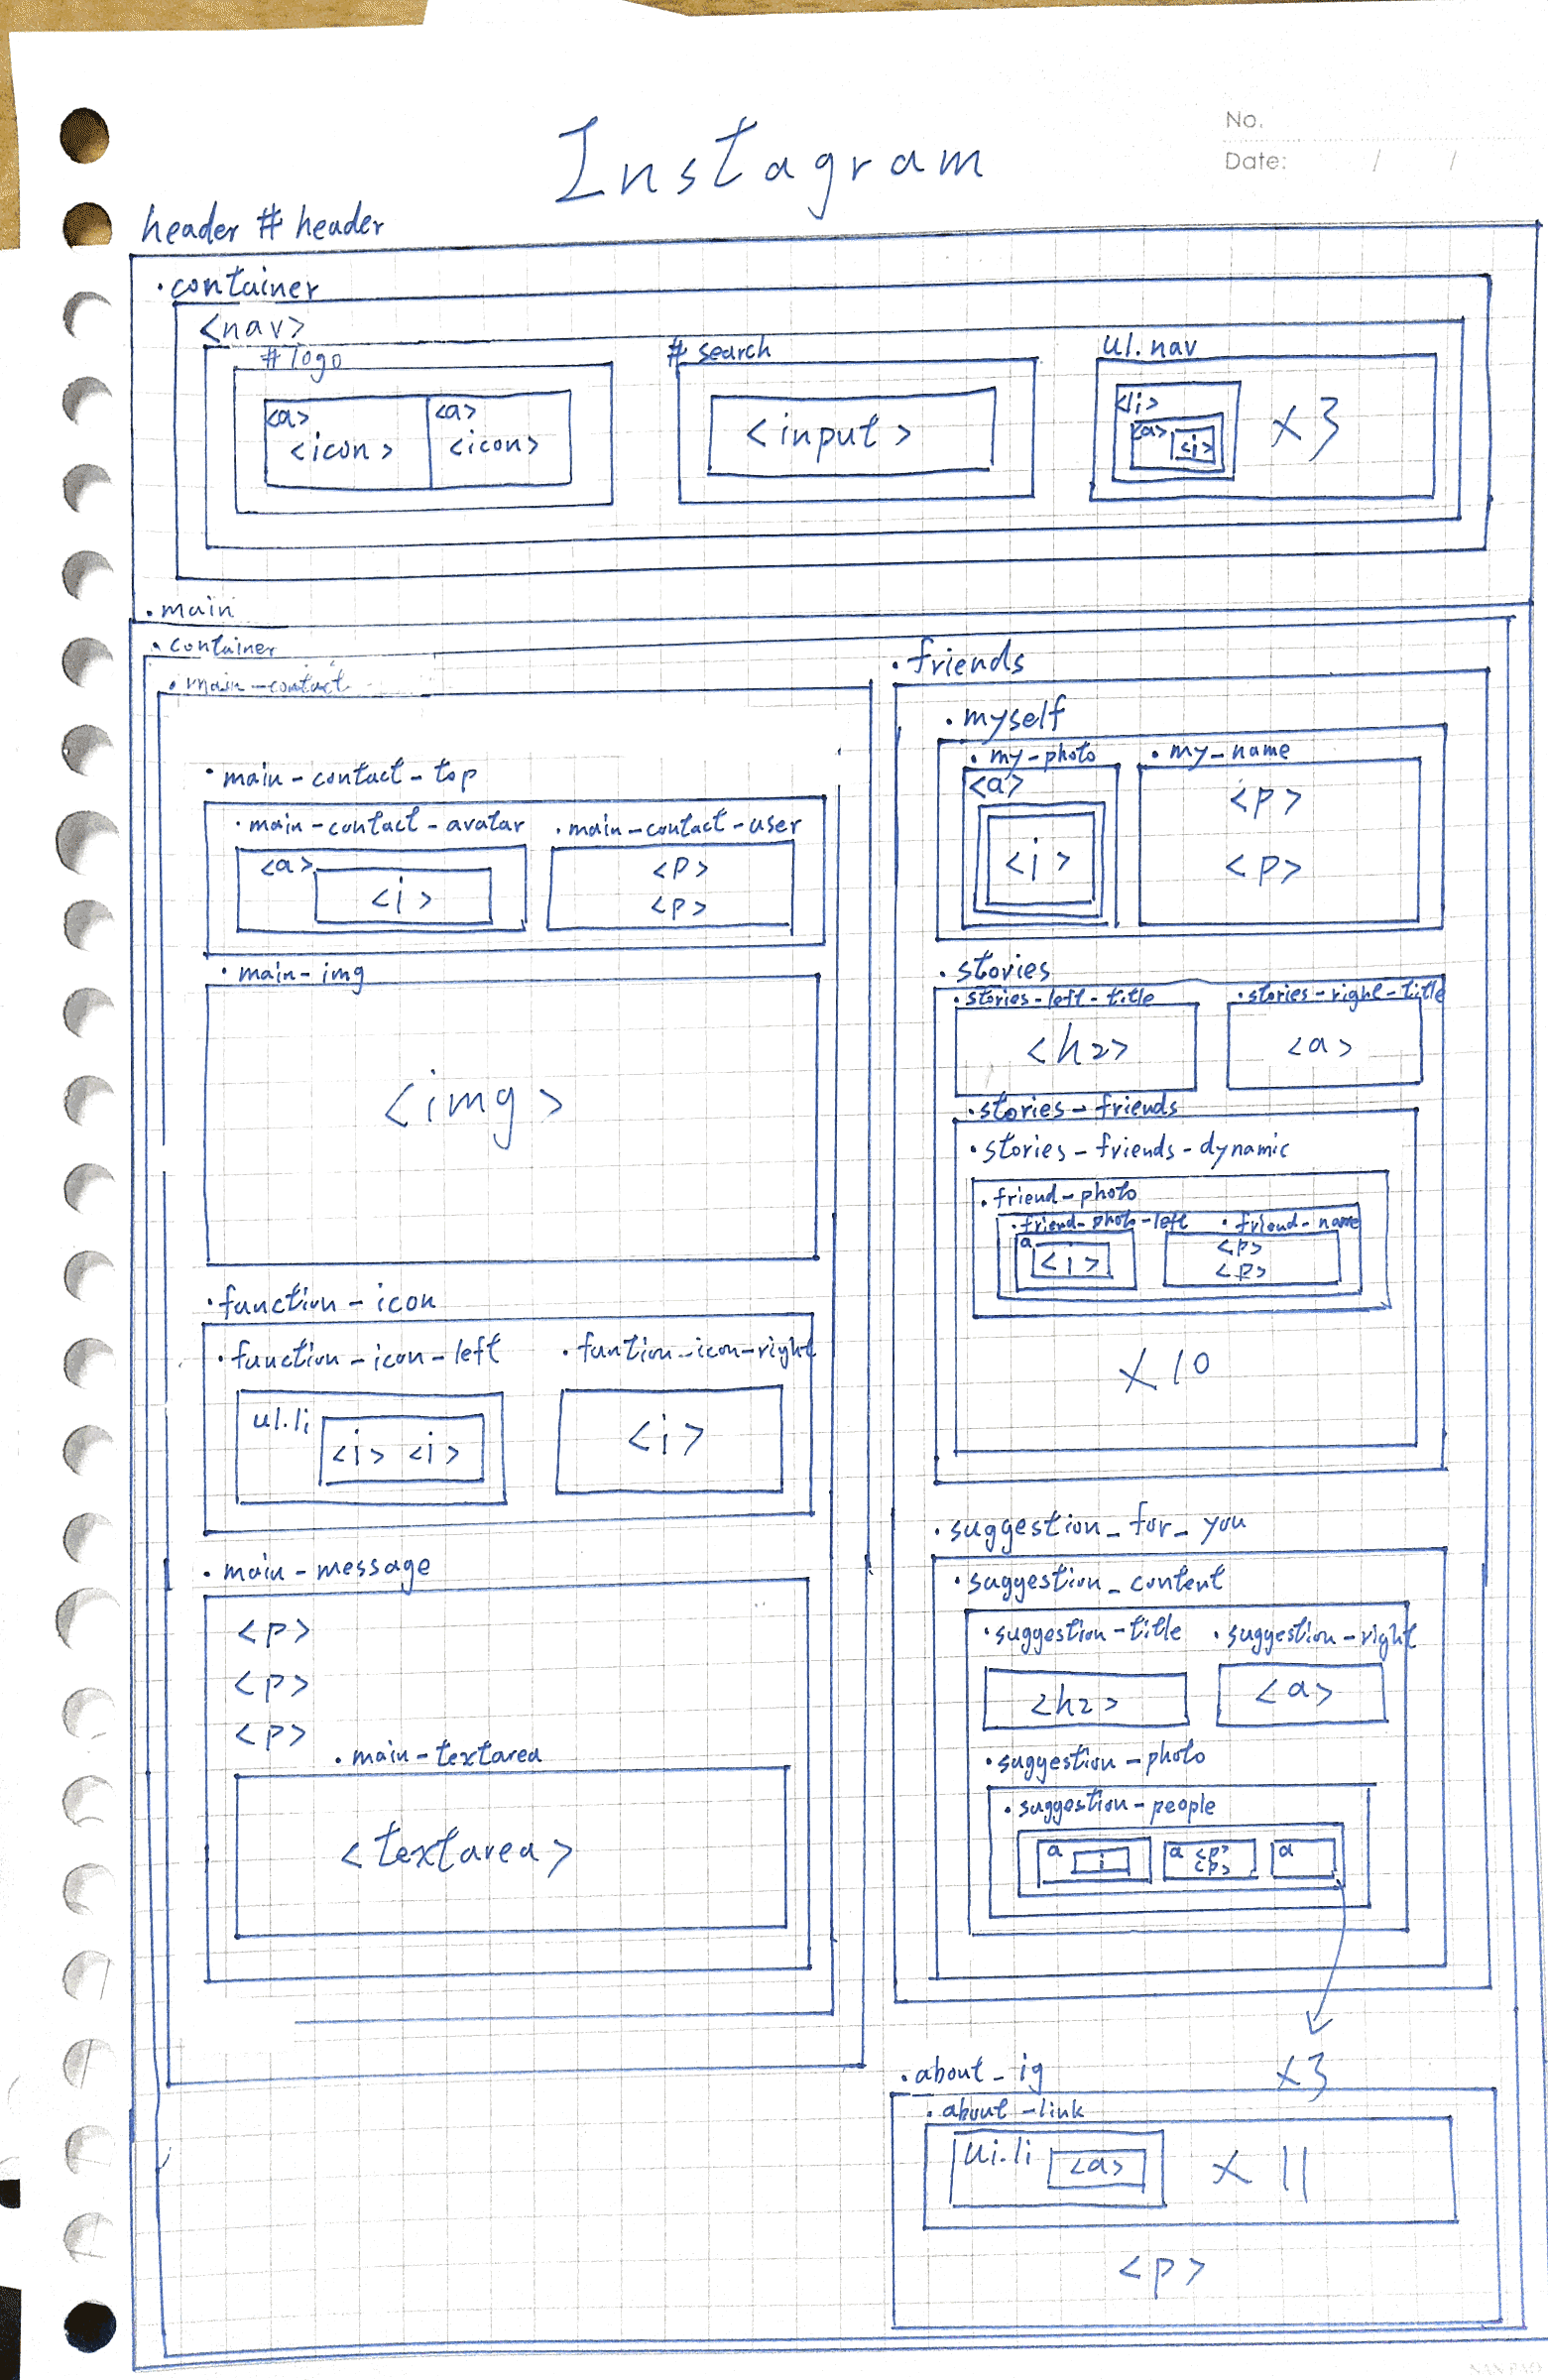 No.
Date: / /
Instagram
header # header
.container
<nav>
# logo
<a>
<icon>
<a>
<icon>
# search
<input>
ul.nav
<li>
<a>
<i>
×3
.main
.container
.main-contact
.main-contact-top
.main-contact-avatar
<a>
<i>
.main-contact-user
<p>
<p>
.main-img
<img>
.function-icon
.function-icon-left
ul.li
<i> <i>
.funtion-icon-right
<i>
.main-message
<p>
<p>
<p>
.main-textarea
<textarea>
.friends
.myself
.my-photo
<a>
<i>
.my_name
<p>
<p>
.stories
.stories-left-title
<h2>
.stories-right-title
<a>
.stories-friends
.stories-friends-dynamic
.friend-photo
.friend-photo-left
a
<i>
.friend-name
<p>
<p>
×10
.suggestion_for_you
.suggestion_content
.suggestion-title
<h2>
.suggestion-right
<a>
.suggestion-photo
.suggestion-people
a
i
a <p>
<p>
a
×3
.about_ig
.about-link
ui.li
<a>
× 11
<p>